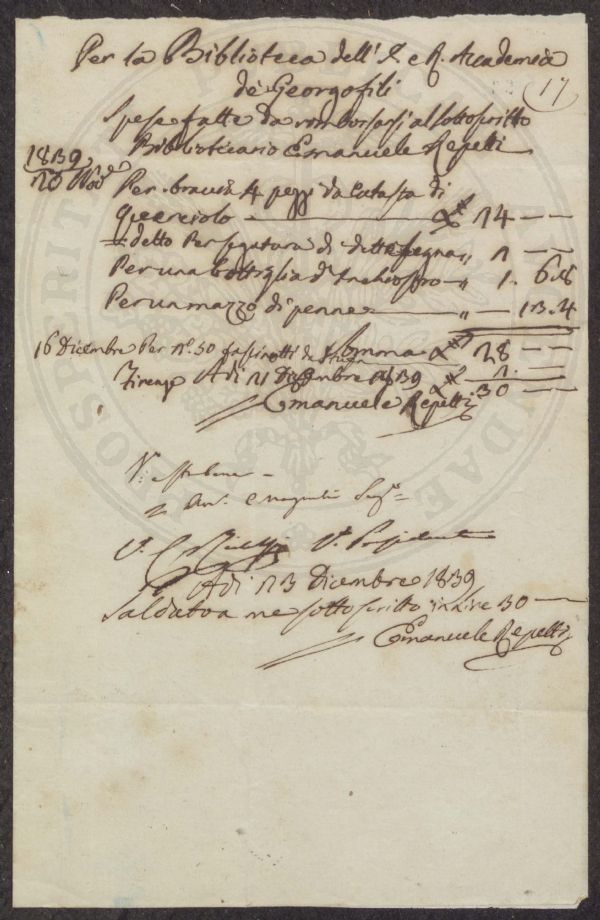 Per la Biblioteca dell'I. e R. Accademia
de' Georgofili
17
Spese fatte da rimborsarsi al sottoscritto
Bibliotecario Emanuele Repetti
1839
20 Nov.
Per braccia 4 pezzi da catasta di
querciolo — 24 — —
detto Per segatura di dette legna „ 1 — —
Per una bottiglia d'Inchiostro — „ 1. 6.8
Per un mazzo di penne — „ — 13.4
Somma 28 — —
16 Dicembre Per N°. 50 fascinotti di
Firenze Adi 21 Dicembre 1839 30 — —
Emanuele Repetti
V. sta bene
V. Presidente
Adi 23 Dicembre 1839
Saldato a me sottoscritto in Lire 30 —
Emanuele Repetti